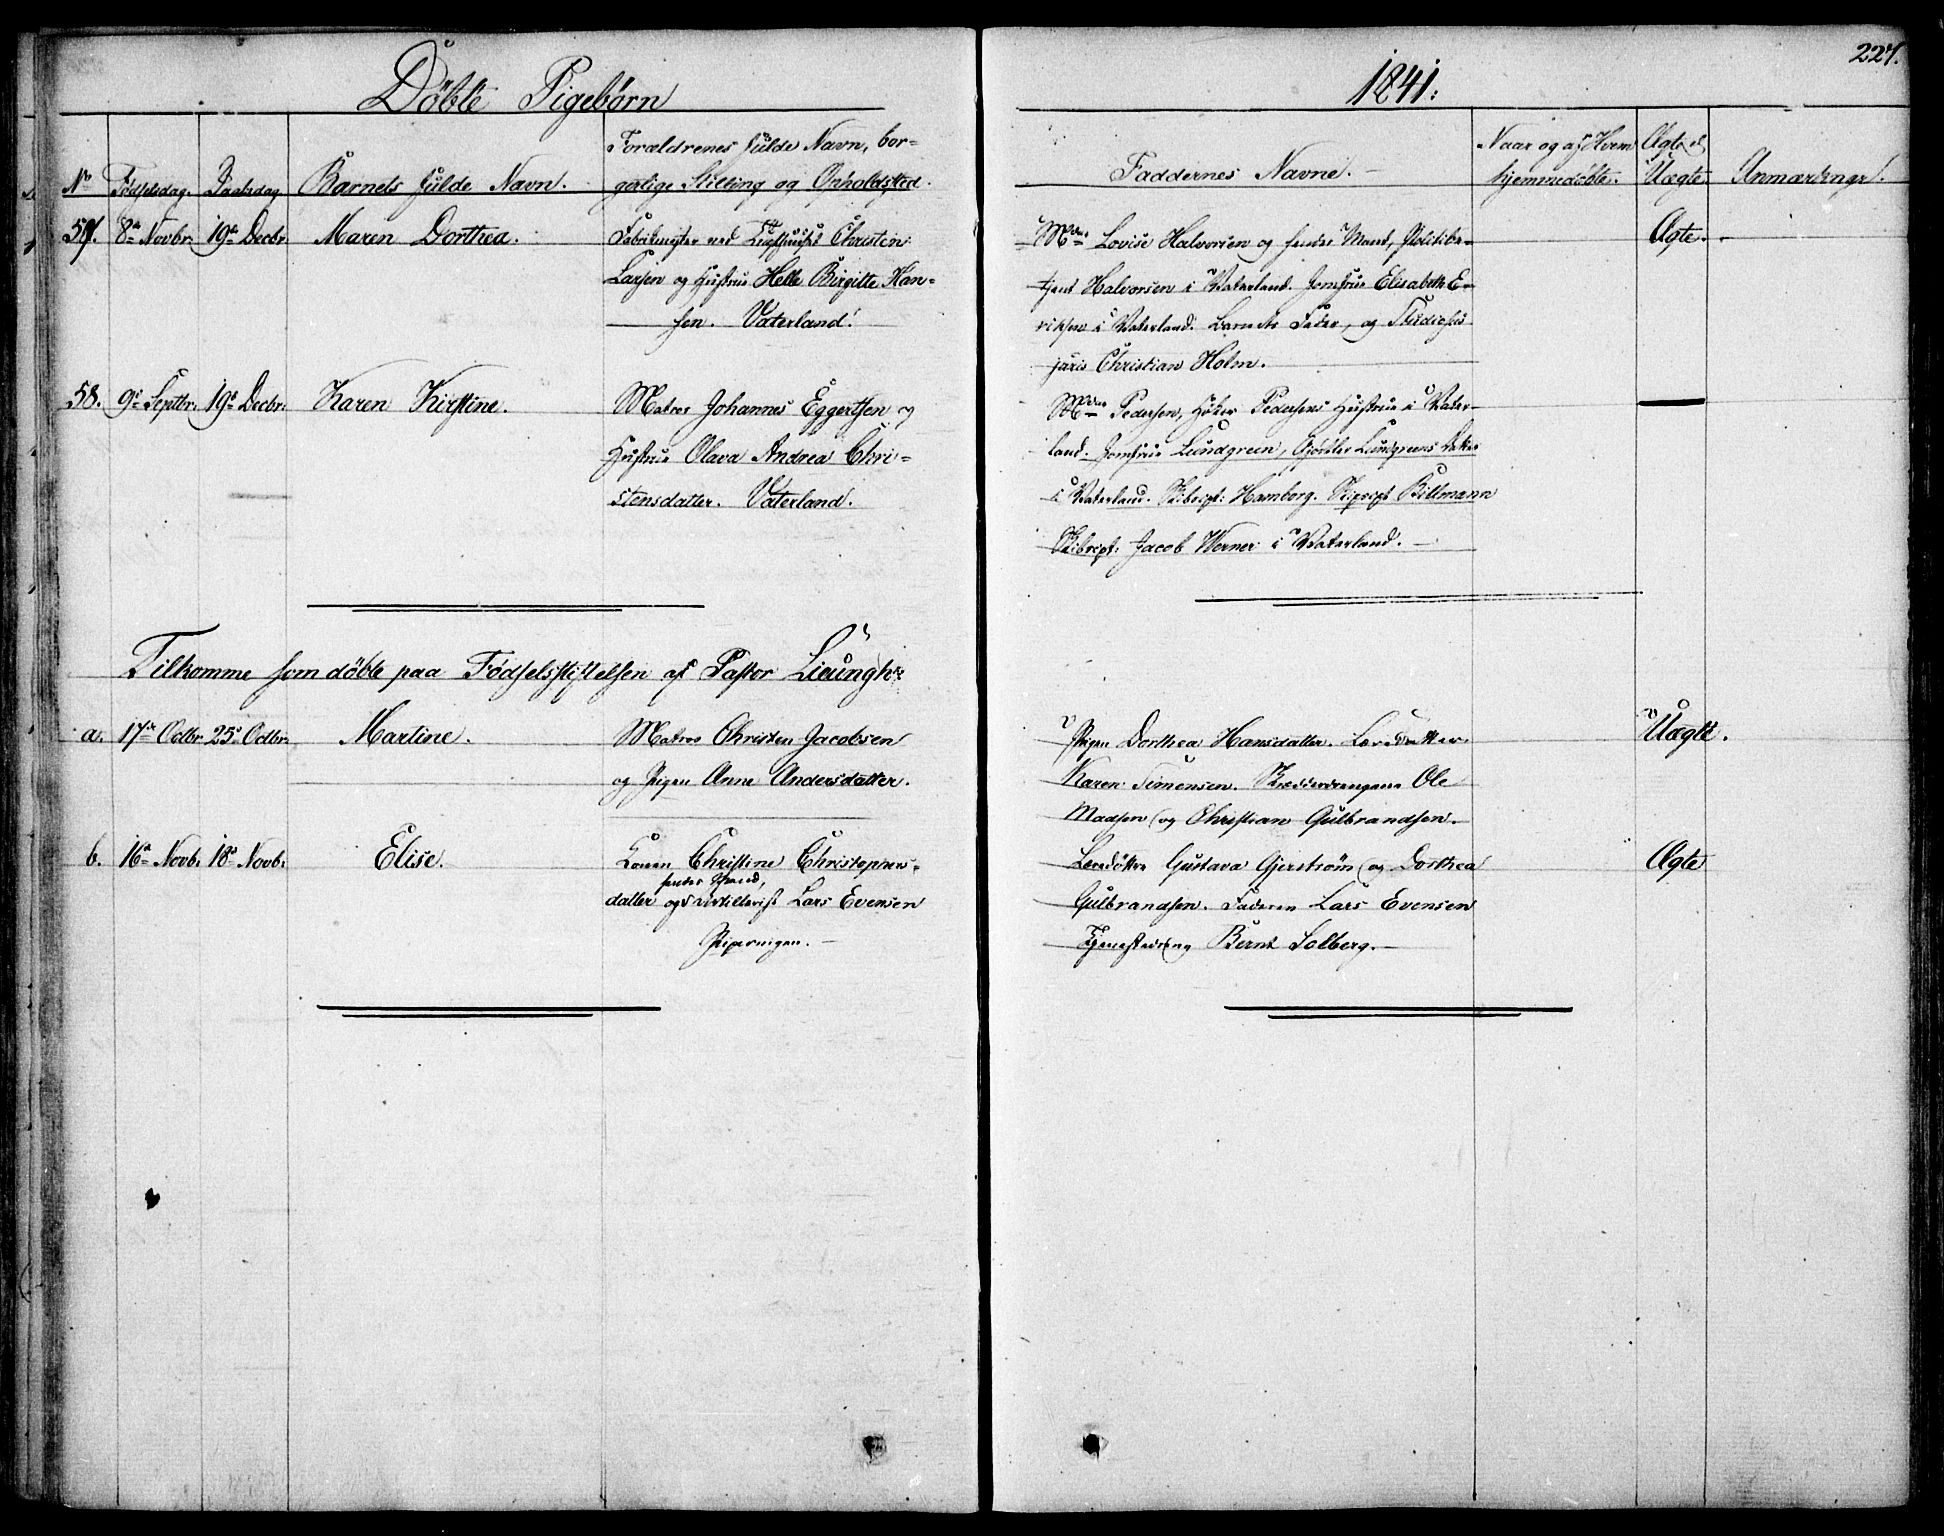 227.
Döbte Pigebørn
1841.
No
Fødselsdag.
Daabsdag
Barnets fulde Navn.
Forældrenes fulde Navn, bor-
gerlige Stilling og Opholdssted.
Faddernes Navne.
Naar og af Hvem
hjemmedøbte.
Ægte el.
Uægte
Anmærkninger.
57. 8de Novbr. 19de Decbr. Maren Dorthea.
Fabrikmester ved Christen
Larsen og Hustrue Helle Birgitte Han-
sen. Vaterland.
Mdme Lovise Halvorsen og hendes Mand, Politibe-
tjent Halvorsen i Vaterland. Jomfrue Elisabeth E-
riksen i Vaterland. Barnets Fader, og Studiosus
juris Christian Holm.
Ægte.
58. 9de Septbr. 19de Decbr. Karen Kirstine.
Matros Johannes Eggertsen og
Hustrue Olava Andrea Chri-
stensdatter. Vaterland.
Mdme Pedersen, Høker Pedersens Hustrue i Vater-
land. Jomfrue Lundgreen, Lundgreens Datter
i Vaterland. Skibscpt: Hamborg. Skipscpt Billmann
Skibscpt: Jacob Werner i Vaterland.
Tilkomme som døbte paa Fødselsstiftelsen af Pastor Lieungh:
a. 17de Octbr 25de Octbr. Martine.
Matros Christen Jacobsen
og Pigen Anne Andersdatter.
Pigen Dorthea Hansdatter. Læredatter
Karen Simensen. Skrædderdrengene Ole
Madsen og Christian Gulbrandsen.
Uægte.
b. 16de Novb. 18de Novb. Elise.
Konen Christine Christophers-
hendes Mand,
datter og Artillerist Lars Evensen
Pipervigen.
Læredøttre Gustava Gjerstrøm og Dorthea
Gulbrandsen. Faderen Lars Evensen
Tjenestedreng Bernt Solberg.
Ægte